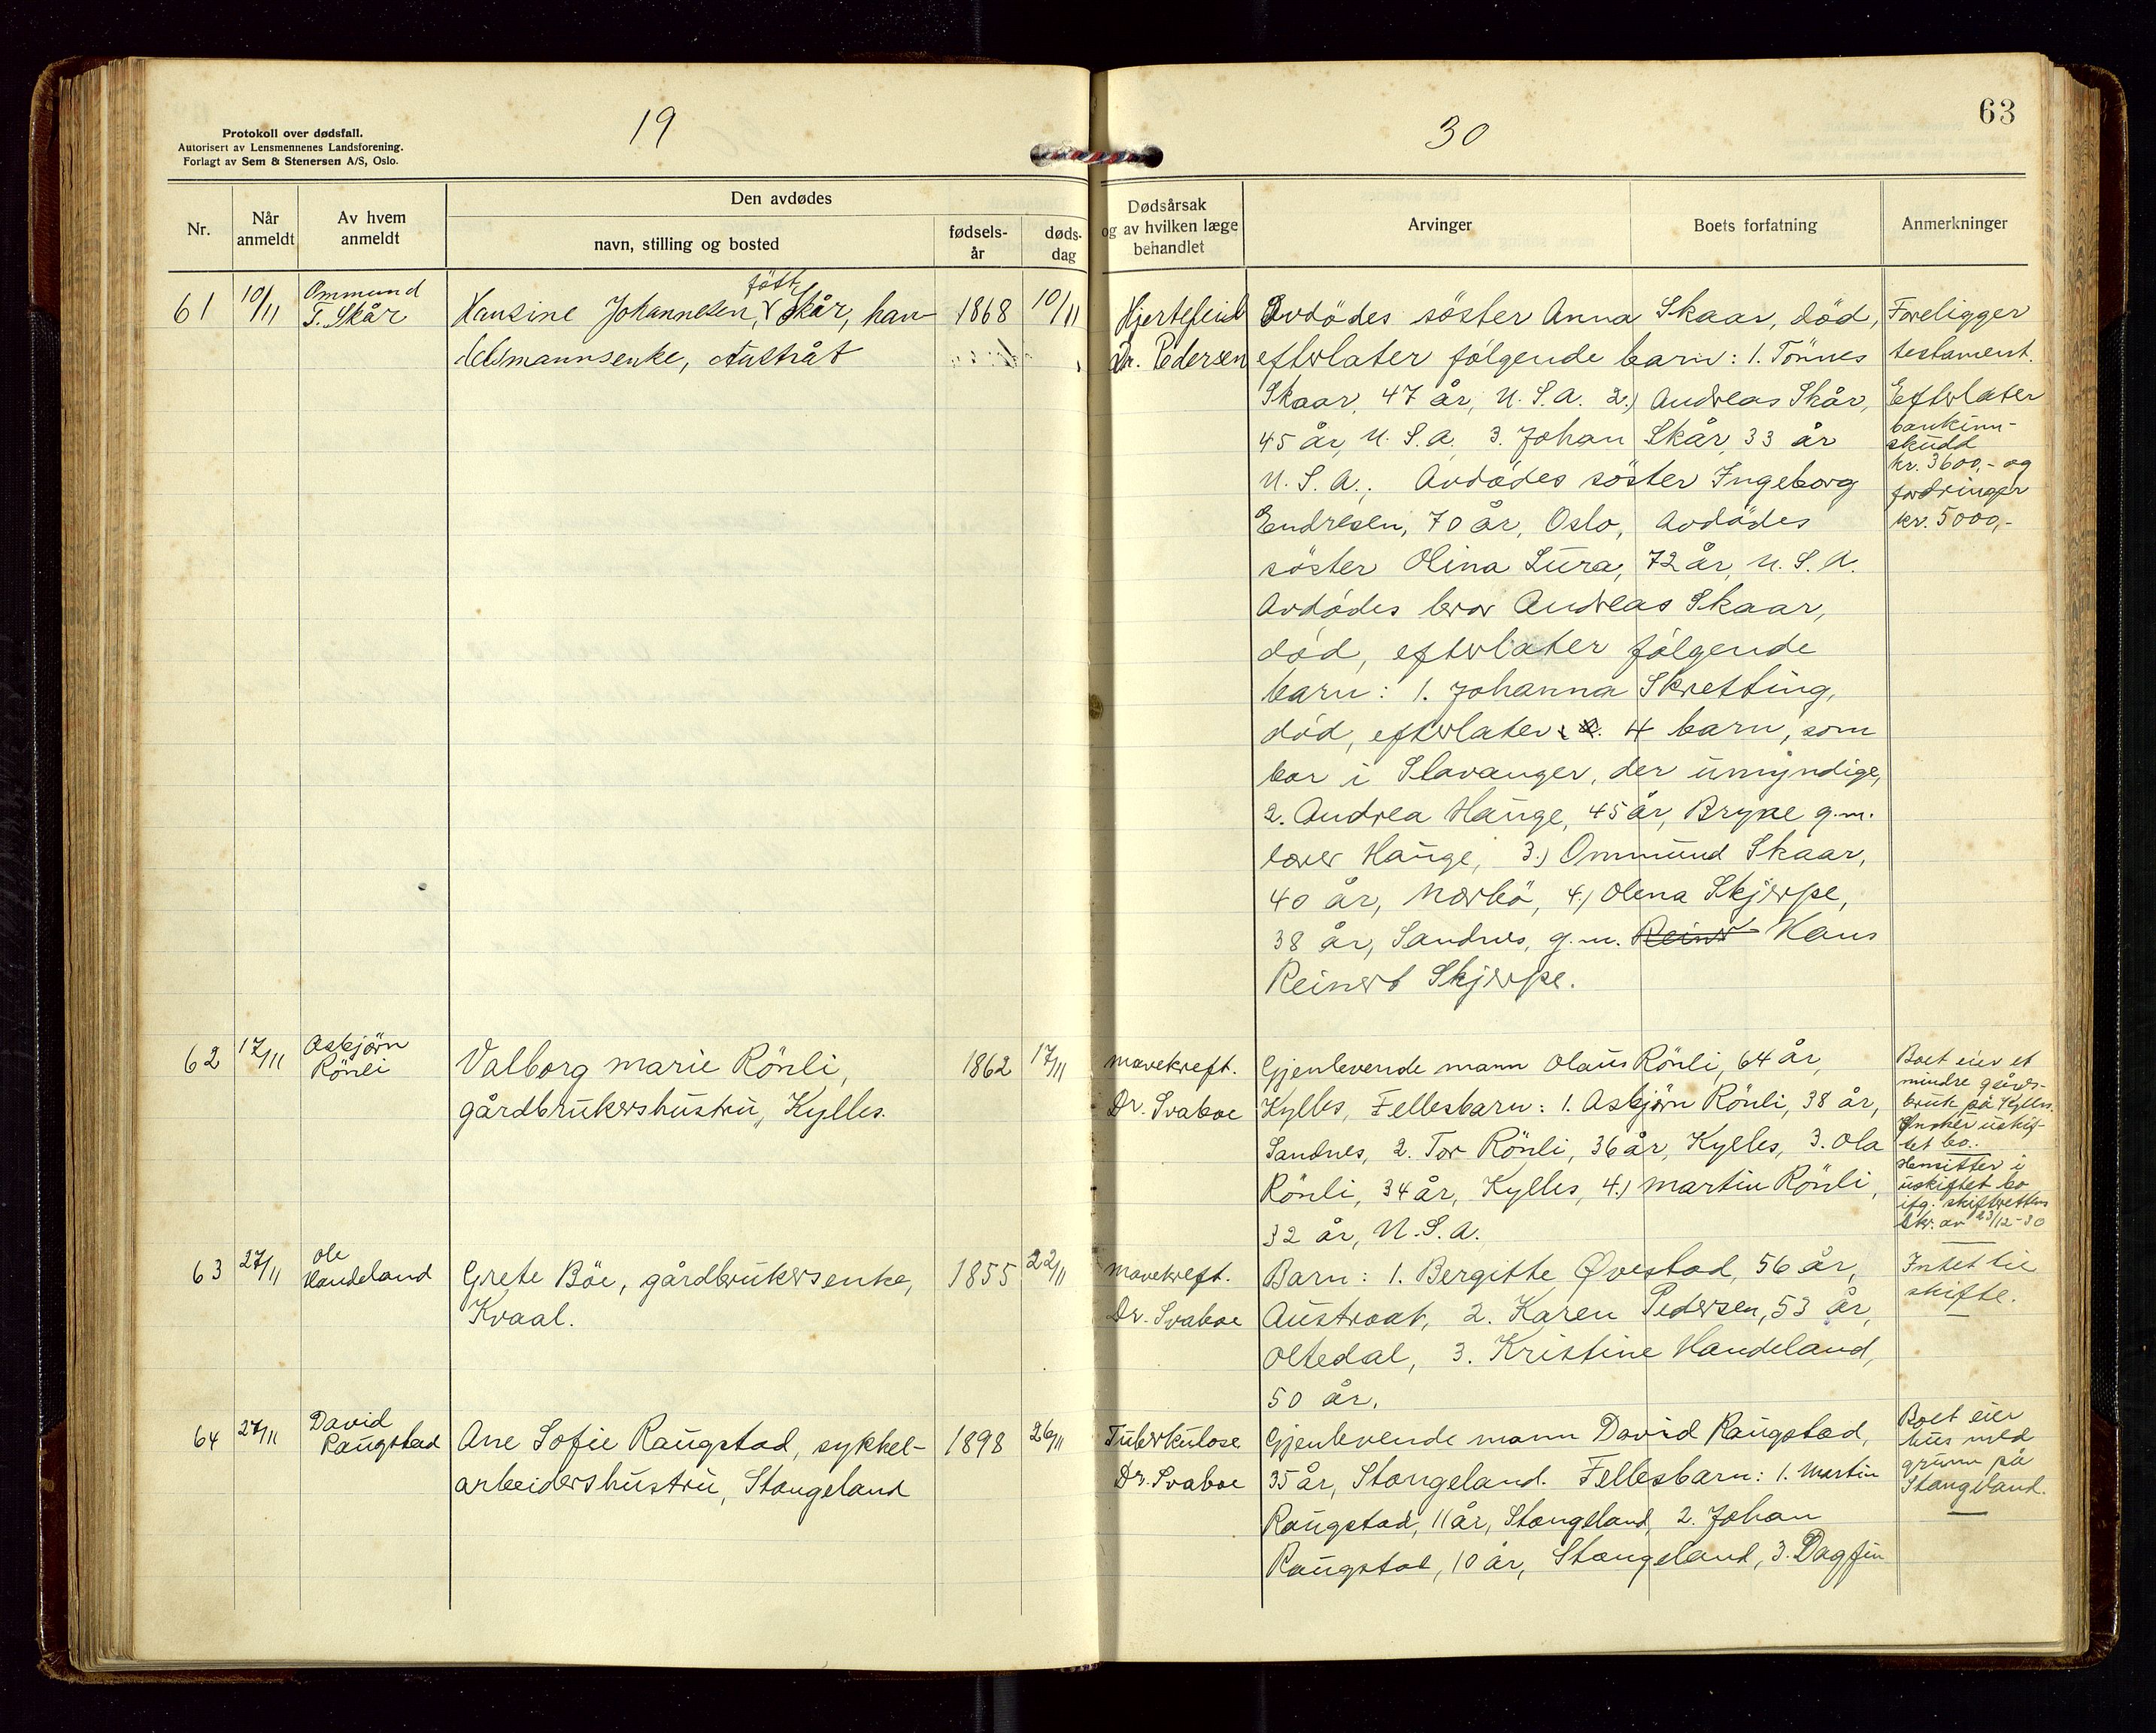 19
30
63
Protokoll over dødsfall.
Autorisert av Lensmennenes Landsforening.
Forlagt av Sem & Stenersen A/S, Oslo.
Nr.
Når anmeldt
Av hvem anmeldt
Den avdødes
navn, stilling og bosted
fødsels-år
døds-dag
Dødsårsak og av hvilken læge behandlet
Arvinger
Boets forfatning
Anmerkninger
61
10/11
Ommund
T. Skår
født
Hansine Johannesen, Skår, han-
delsmannsenke, Austråt
1868
10/11
Hjertefeil
Dr. Pedersen
Avdödes söster Anna Skaar, död,
efterlater fölgende barn: 1. Tönnes
Skaar, 47 år, U.S.A. 2.) Andreas Skår,
45 år, U.S.A. 3. Johan Skår, 33 år
U.S.A., Avdödes söster Ingeborg
Endresen, 70 år, Oslo, Avdödes
söster Olina Lura, 72 år, U.S.A.
Avdödes bror Andreas Skaar,
död, efterlater fölgende
barn: 1. Johanna Skretting,
död, efterlater 4 barn, som
bor i Stavanger, der umyndige,
2. Andrea Hauge, 45 år, Bryne g.m.
lærer Hauge, 3.) Ommund Skaar,
40 år, Nærbö, 4.) Olena Skjerpe,
38 år, Sandnes, g.m. Reiner Hans
Reinert Skjerpe.
Foreligger
testament.
Efterlater
bankinn-
skudd
kr. 3600,- og
fordringer
kr. 5000,-
62
17/11
Asbjörn
Rönli
Valborg Marie Rönli,
gårdbrukershustru, Kylles.
1862
17/11
Mavekreft.
Dr. Svaboe
Gjenlevende mann Olaus Rönli, 64 år,
Kylles, Fellesbarn: 1. Asbjörn Rönli, 38 år,
Sandnes, 2. Tor Rönli, 36 år, Kylles, 3. Ola
Rönli, 34 år, Kylles, 4.) Martin Rönli,
32 år, U.S.A.
Boet eier et
mindre gårds-
bruk på Kylles.
Önsker uskif-
tet bo.
Hensitter i
uskiftet bo
ifg. skifterettens
skr. av 23/12-30
63
27/11
Ole
Haudeland
Grete Böe, gårdbrukersenke,
Kvaal.
1855
22/11
Mavekreft.
Dr. Svaboe
Barn: 1. Bergitte Øvestad, 56 år,
Austraat, 2. Karen Pedersen, 53 år,
Oltedal, 3. Kristine Haudeland,
50 år.
Intet til
skifte.
64
27/11
David
Raugstad
Ane Sofie Raugstad, sykkel-
arbeidershustru, Stangeland
1898
26/11
Tuberkulose
Dr. Svaboe
Gjenlevende mann David Raugstad,
35 år, Stangeland. Fellesbarn: 1. Martin
Raugstad, 11 år, Stangeland, 2. Johan
Raugstad, 10 år, Stangeland, 3. Dagfin
Boet eier
hus med
grunn på
Stangeland.